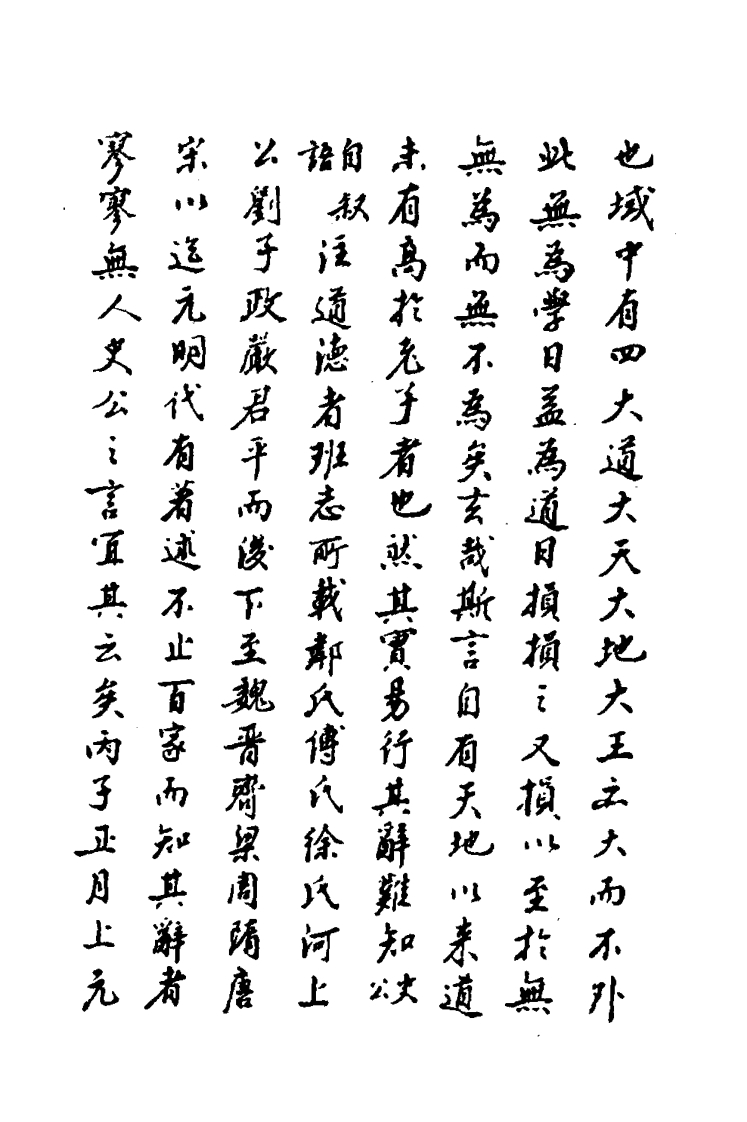 也域中有四大道大天大地大王亦大而不外
此無為學日益為道日損損之又損以至於無
無為而無不為矣玄哉斯言自有天地以來道
未有高於老子者也然其實易行其辭難知史公
自叙語注道德者班志所載鄰氏傅氏徐氏河上
公劉子政嚴君平而後下至魏晉齊梁周隋唐
宋以迄元明代有著述不止百家而知其辭者
寥寥無人史公之言宜其云矣丙子正月上元